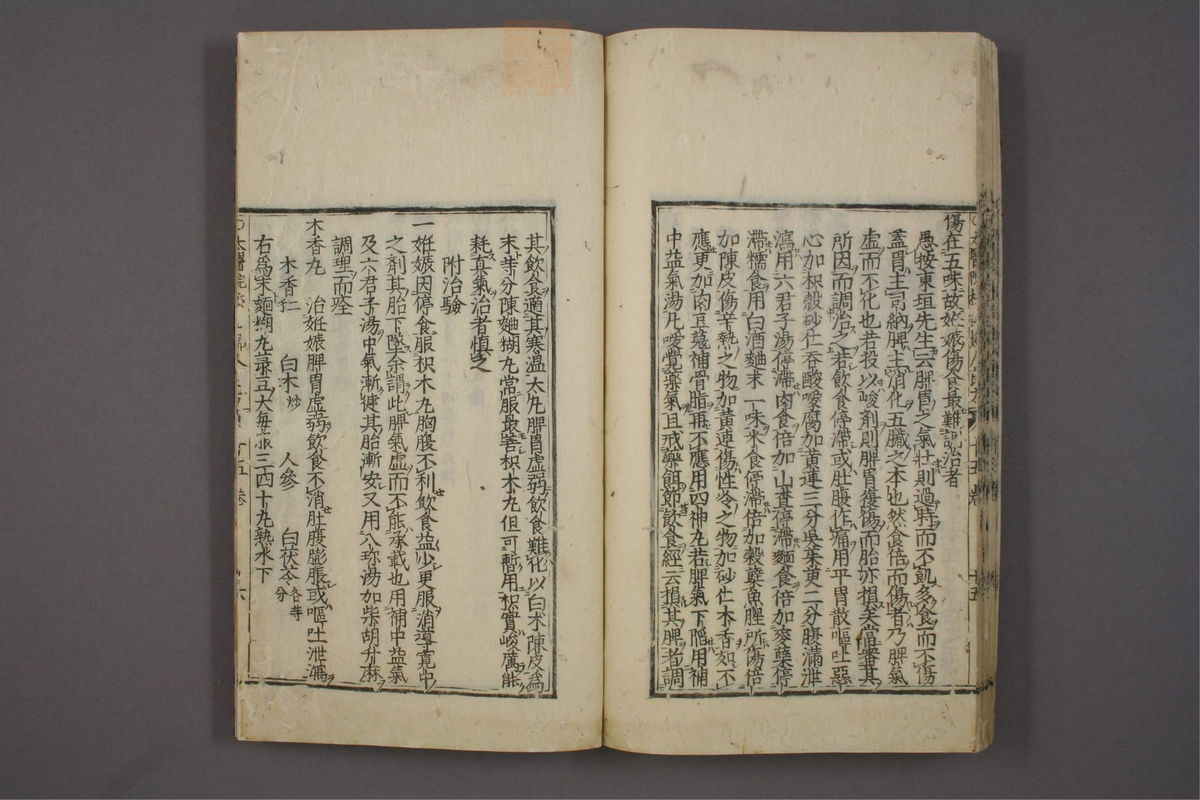 傷在五味故妊娠傷食最難調治者
愚按東垣先生云脾胃之氣壯則過時而不飢多食而不傷
蓋胃主司納脾主消化五臟之本也然食倍而傷者乃脾氣
虛而不化也若投以峻劑則脾胃復傷而胎亦損矣當審其
所因而調治之若飲食停滯或肚腹作痛用平胃散嘔吐惡
心加枳殼砂仁吞酸噯腐加黃連三分吳茱萸二分腹滿泄
瀉用六君子湯停滯肉食倍加山查停滯麵食倍加麥糵停
滯糯食用白酒麯末一味米食停滯倍加穀糵魚腥所傷倍
加陳皮傷辛熱之物加黃連傷性冷之物加砂仁木香如不
應更加肉豆蔻補骨脂再不應用四神丸若脾氣下陷用補
中益氣湯凡噯覺藥氣且戒藥餌節飲食經云損其脾者調
其飲食適其寒溫大凡脾胃虛弱飲食難化以白朮陳皮爲
末等分陳麯糊丸常服最善枳朮丸但可暫用枳實峻厲能
耗真氣治者慎之
附治驗
一妊娠因停食服枳朮丸胸腹不利飲食益少更服消導寬中
之劑其胎下墜余謂此脾氣虛而不能承載也用補中益氣
及六君子湯中氣漸健其胎漸安又用八珍湯加柴胡升麻
調理而痊
木香丸　治妊娠脾胃虛弱飲食不消肚腹膨脹或嘔吐泄瀉
木香仁　白朮炒　人參　白茯苓各等分
右爲末麵糊丸菉豆大每服三四十丸熟水下
十五卷